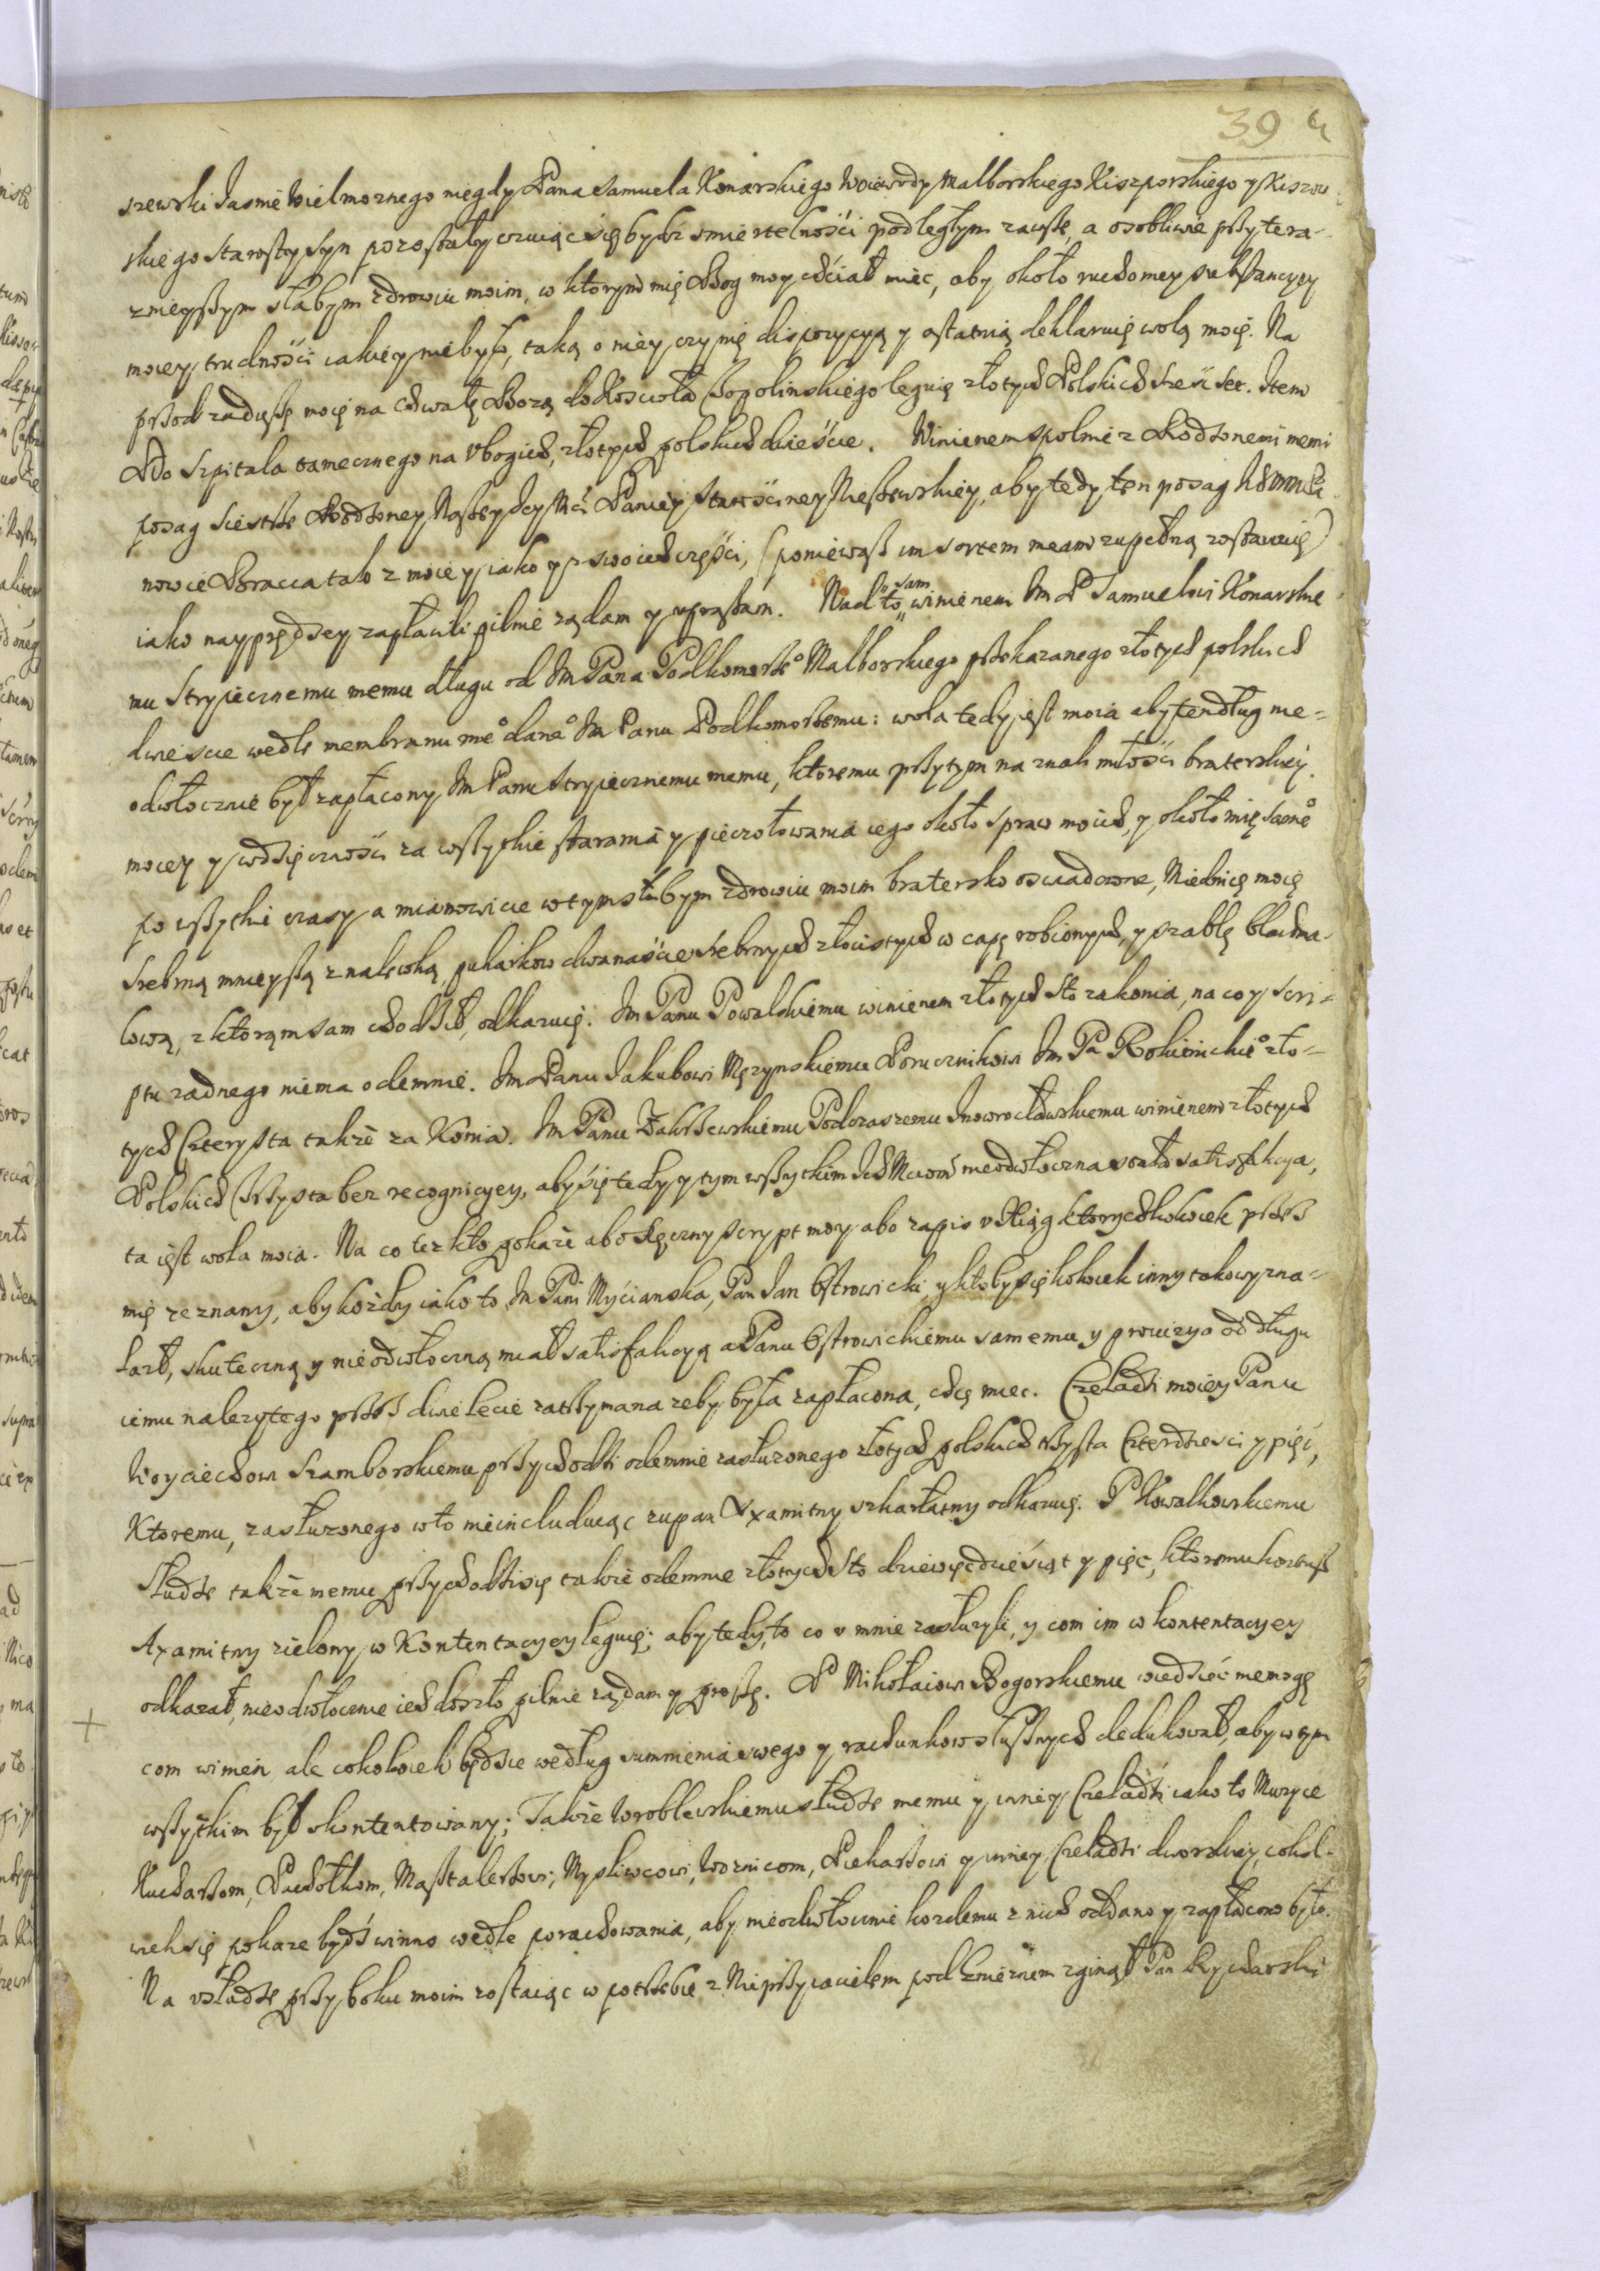 39
szewski Jasnie Wielmoznego niegdy Pana Samuela Konarskiego Woiewody Malborskiego Kiszporskiego y Kiszow
skiego Starosty syn pozostały czuiąc się bydz smiertelności podległym zawsze, a osobliwie przy tera-
znieyszym słabym zdrowiu moim, w ktorym mię Bog moy chciał miec, aby około ruchomey substancyey
moiey trudności iakiey nie było, taką o niey czynię dispozycyą y ostatnią deklaruię wolą moię. Na
przod za duszę moię na chwałę Bozą do Koscioła Topolinskiego leguię złotych Polskich sześć set. Item
Do Szpitala tamecznego na Vbogich, złotych polskich dwieście. Winienem spolnie z Rodzonemi memi
posag Siestrze Rodzoney Naszey Jey Mci Paniey Starościney, aby tedy ten posag Ichmmci
nowie Bracia tak z moiey iako y z swoich części, (poniewasz im sortem meam zupełną zostawuię)
iako nayprędzey zapłacili pilnie ządam y upraszam. Nad to sam winienem Im P Samuelowi Konarskie
mu Stryiecznemu memu długu od Im Pana Podkomorze° Malborskiego przekazanego złotych polskich
dwiescie wedle membranu me° dane° Im Panu Podkomorzemu: wola tedy iest moia aby ten dług nie=
odwłocznie był zapłacony Im Panu Stryiecznemu memu, ktoremu przy tym na znak miłości braterskiey
moiey y wdzięczności za wszystkie starania y pieczołowania iego około spraw moich, y około mię same°
po wszytkie czasy a mianowicie w tym słabym zdrowiu moim bratersko oswiadczone, Miednicę moię
srebrną mnieyszą z nalewką, puharkow dwanaście srebrnych złocistych w capę robionych, y szablę blachma-
lową, z ktorąm sam chodził, odkazuię. Im Panu Powalskiemu winienem złotych sto za konia, na co y scri=
ptu zadnego niema odemnie. Im Panu Jakubowi Męzynskiemu Porucznikowi Im Pa Rokicickie° zło=
tych Czterysta takze za Konia. Im Panu Zakrzewskiemu Podczaszemu Inowrocławskiemu winienem złotych
Polskich Trzysta bez recognicyey, aby się tedy y tym wszytkim Ich Mciom nieodwłoczna stała satisfakcya,
ta iest wola moia. Na co tez kto pokaze abo Ręczny script moy abo zapis v Xiąg ktorychkolwiek przez
mię zeznany, aby kozdy iako to Im Pani Myciauska, Pan Jan Ostrowicki, y ktoby się kolwiek inny takowy zna=
lazł, skuteczną y nieodwłoczną miał satisfakcyą a Panu Ostrowickiemu samemu y prowizya od długu
iemu nalezytego przez dwie lecie zatrzymana zeby była zapłacona, chcę miec. Czeladzi moiey Panu
Woyciechowi Szamborskiemu przychodzi odemnie zasłuzonego złotych polskich trzysta Czterdziesci y pięć,
Ktoremu, zasłuzonego w to nieincluduiąc zupan Axamitny szkarłatny odkazuię. P Kowalkowskiemu
Słudze takze memu przychodzi się takze odemnie złotych sto dziewięcdzieśiąt y pięc, ktoremu kontusz
Axamitny zielony w Kontentacyey leguię; aby tedy, to co v mnie zasłuzyli, y com im w kontentacyey
odkazał, nieodwłocznie ich doszło pilnie ządam y proszę. P Mikołaiowi Bogorskiemu wiedziec niemogę
com winien ale cokolwiek będzie według summienia swego y rachunkow słusznych dedukował, aby w tym
wszytkim był skontentowany; Takze Wroblewskiemu słudze memu y inney Czeladzi iako to Muzyce
Kucharzom, Pachołkom, Masztalerzowi, Mysliwcowi, Woznicom, Piekarzowi y inney Czeladzi dworskiey, cokol-
wiek się pokaze bydź winno wedle porachowania, aby nieodwłocznie kozdemu z nich oddano y zapłacono było.
Na vsłudze przy boku moim zostaiąc w potrzebie z Nieprzyiacielem pod Gnieznem zginął Pan Rycharski